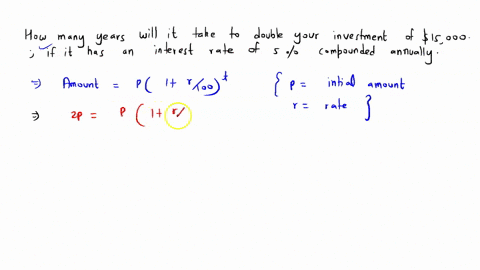 How many years will it take to double your investment of $15,000.
; if it has an interest rate of 5% compounded annually.
⇒ Amount = P( 1+ r/100 )^t { P = intial amount
r = rate }
⇒ 2P = P ( 1+ r/